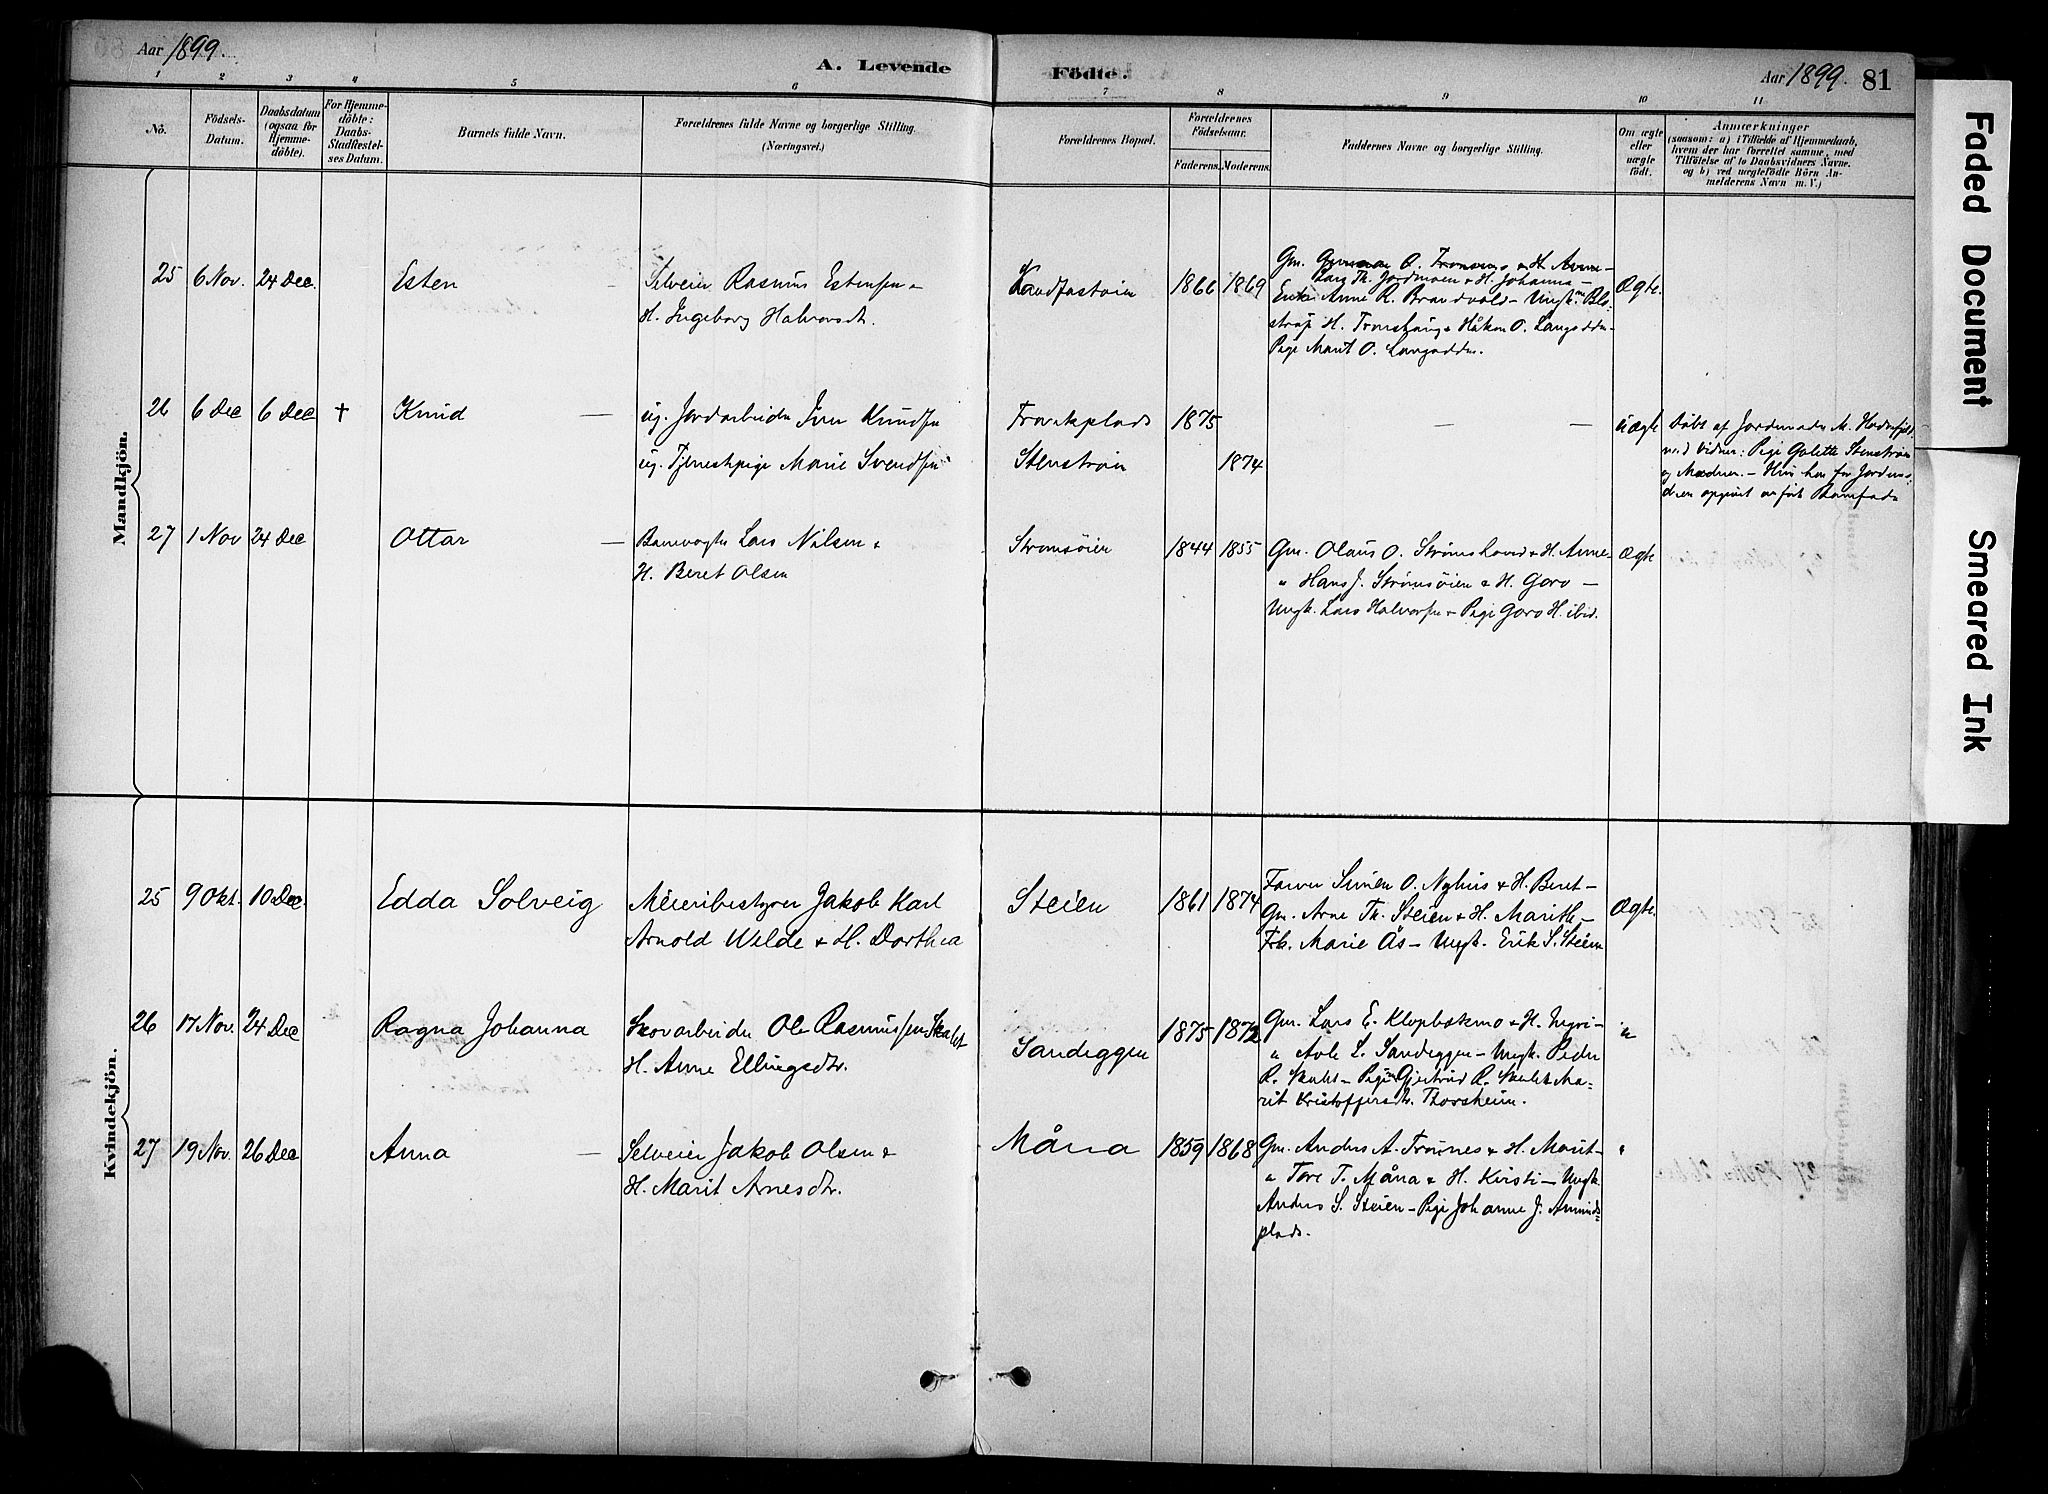 Aar 1899.
A. Levende Födte.
Aar 1899. 81
1 2 3 4 5 6 7 8 9 10 11
No.
Födsels-Datum.
Daabsdatum (ogsaa for Hjemme-döbte).
For Hjemme-döbte: Daabs-Stadfæstel-ses Datum.
Barnets fulde Navn.
Forældrenes fulde Navne og borgerlige Stilling. (Næringsvei.)
Forældrenes Bopæl.
Forældrenes Födselsaar.
Faderens. Moderens.
Faddernes Navne og borgerlige Stilling.
Om ægte eller uægte födt.
Anmærkninger
(saasom: a) i Tilfælde af Hjemmedaab,
hvem der har forrettet samme, med
Tilföielse af to Daabsvidners Navne.
og b) ved uægtefödte Börn An-
melderens Navn m. V.)
Mandkjön.
25 6 Nov. 24 Dec. Esten
Selveier Rasmus Estensen
H. Ingeborg Halvorsdtr.
1866 1869
Lars Th. Jordmoen & H. Johanna -
Enke Anne R. Brandvold - Ungk.
H. Tronshaug & Håkon O. Langodden
Pige Marit O. Langodden.
Ægte.
26 6 Dec 6 Dec † Knud —
ug. Jordarbeider Iver Knudsen
ug. Tjenestepige Marie Svendsen
1875
Stenstrøm 1874
— —
Uægte
Døbt af Jordemoder M.
med Vidner: Pige Galette Stenstrøm
27 1 Nov 24 Dec Ottar —
Banevogter Lars Nilsen &
H. Beret Olsen
Strømsøien 1844 1855
Gm. Olaus O. Strømshoved & H. Anne
" Hans J. Strømsøien & H. Goro -
Ungk. Lars Halvorsen - Pige Goro H. ibid.
Ægte
Kvindekjön.
25 9 Okt. 10 Dec. Edda Solveig
Meieribestyrer Jakob Karl
Arnold Wilde & H. Dorthea
Steien 1861 1874
Farver Simen O. Nyhus & H. Beret -
Gm. Arne Th. Steien & H. Marithe -
Frk. Marie Ås - Ungk. Erik S. Steien
Ægte.
26 17 Nov. 24 Dec Ragna Johanna
Skovarbeider Ole Rasmussen Skalet
H. Anne Ellingsdtr.
Sandeggen 1875 1872
Gm. Lars E. Klopbakmo & H. Ingri -
" Avle L. Sandeggen - Ungk. Peder
R. Skalet - Pige Gjertrud R. Skalet Ma-
rit Kristoffersdtr. Thorsheim.
"
27 19 Nov. 26 Dec Anna —
Selveier Jakob Olsen &
H. Marit Arnesdtr.
Måna 1859 1868
Gm. Anders A. Trønnes & H. Marit -
" Tore T. Måna & H. Kirsti - Ungk.
Anders S. Steien - Pige Johanne J. Aminds-
plads.
"
Faded Document
Smeared Ink